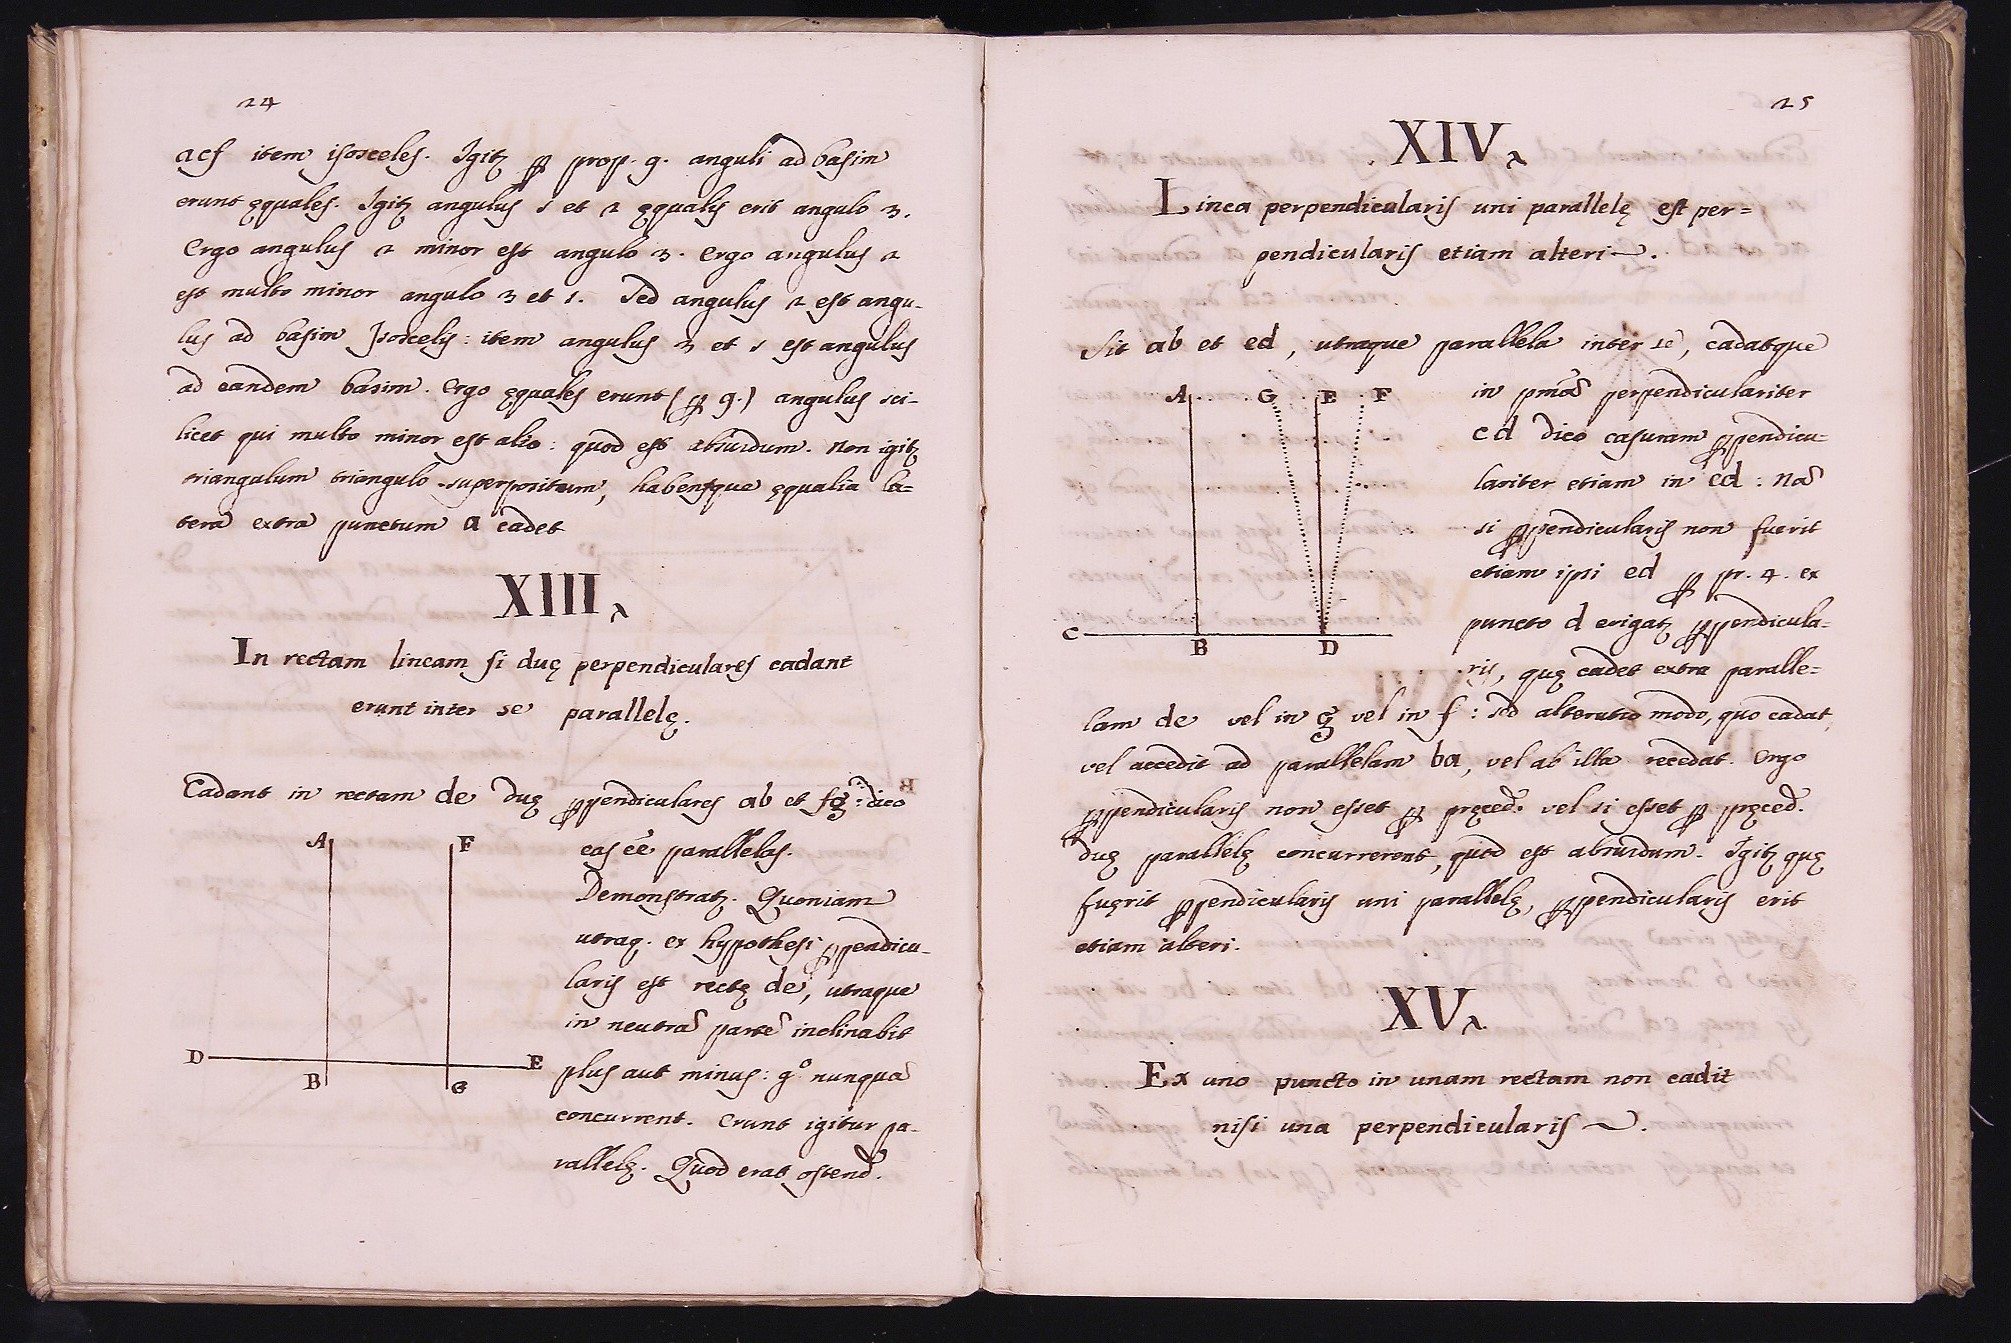 24
acf item isosceles. Igitʒ ꝑ prop. 9. anguli ad basim
erunt ęquales. Igitʒ angulus 1 et 2 ęqualis erit angulo 3.
Ergo angulus 2 minor est angulo 3. Ergo angulus 2
est multo minor angulo 3 et 1. Sed angulus 2 est angu-
lus ad basim Isoscelis: item angulus 3 et 1 est angulus
ad eandem basim. Ergo ęquales erunt (ꝑ 9.) angulus sci-
licet qui multo minor est alio: quod est absurdum. Non igitʒ
triangulum triangulo superpositum, habensque ęqualia la=
tera extra punctum a cadet
XIII
In rectam lineam si duę perpendiculares cadant
erunt inter se parallelę.
Cadant in rectam de duę ꝑpendiculares ab et fg: dico
eas eē parallelas.
Demonstratʒ. Quoniam
utraq. ex hypothesi ꝑpendicu-
laris est rectę de, utraque
in neutrā partē inclinabit
plus aut minus: gº nunquā
concurrent. Erunt igitur pa-
rallelę. Quod erat ostend.
A F
D E
B G
25
XIV
Linea perpendicularis uni parallelę est per=
pendicularis etiam alteri.
Sit ab et ed, utraque parallela inter se, cadatque
in pmā perpendiculariter
cd dico casuram ꝑpendicu-
lariter etiam in ed: Nā
si ꝑpendicularis non fuerit
etiam ipsi ed ꝑ pr. 4. ex
puncto d erigatʒ ꝑpendicula-
ris, quę cadet extra paralle=
lam de vel in g vel in f: sed alterutro modo, quo cadat,
vel accedit ad parallelam ba, vel ab illa recedat. Ergo
ꝑpendicularis non esset ꝑ pręced. vel si esset ꝑ pręced.
duę parallelę concurrerent, quod est absurdum. Igitʒ quę
fuęrit ꝑpendicularis uni parallelę, ꝑpendicularis erit
etiam alteri.
A G E F
C
B D
XV
Ex uno puncto in unam rectam non cadit
nisi una perpendicularis.